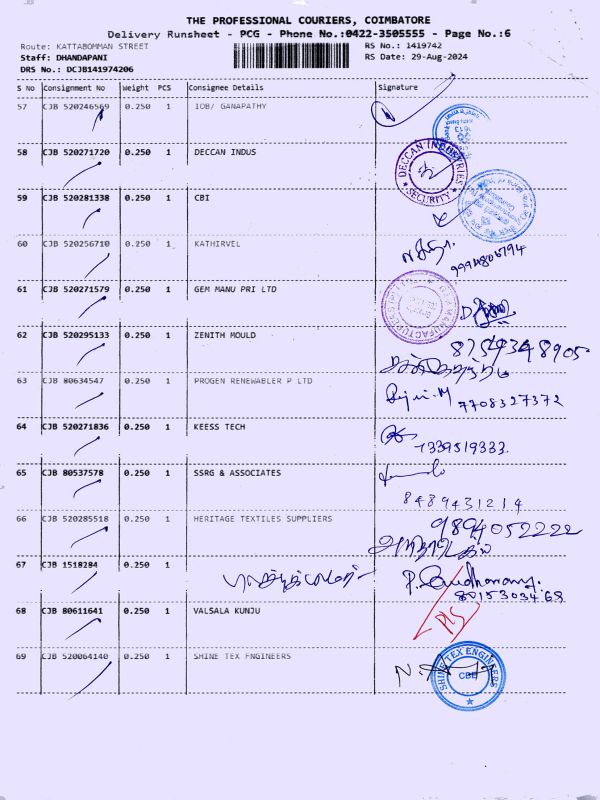 THE PROFESSIONAL COURIERS, COIMBATORE
Delivery Runsheet - PCG - Phone No.:0422-3505555 - Page No.:6
Route: KATTABOMMAN STREET
RS No.: 1419742
Staff: DHANDAPANI
RS Date: 29-Aug-2024
DRS No.: DCJB141974206
S No Consignment No Weight PCS Consignee Details Signature
57 CJB 520246569 0.250 1 IOB/ GANAPATHY
58 CJB 520271720 0.250 1 DECCAN INDUS
DECCAN INDUSTRIES
SECURITY
59 CJB 520281338 0.250 1 CBI
60 CJB 520256710 0.250 1 KATHIRVEL
9994806794
61 CJB 520271579 0.250 1 GEM MANU PRI LTD
62 CJB 520295133 0.250 1 ZENITH MOULD
8754348905
63 CJB 80634547 0.250 1 PROGEN RENEWABLER P LTD
7708327372
64 CJB 520271836 0.250 1 KEESS TECH
7339519333.
65 CJB 80537578 0.250 1 SSRG & ASSOCIATES
8489431214
66 CJB 520285518 0.250 1 HERITAGE TEXTILES SUPPLIERS
9894052222
67 CJB 1518284 0.250 1
8015303468
68 CJB 80611641 0.250 1 VALSALA KUNJU
69 CJB 520064140 0.250 1 SHINE TEX ENGINEERS
SHINE TEX ENGINEERS
CBE